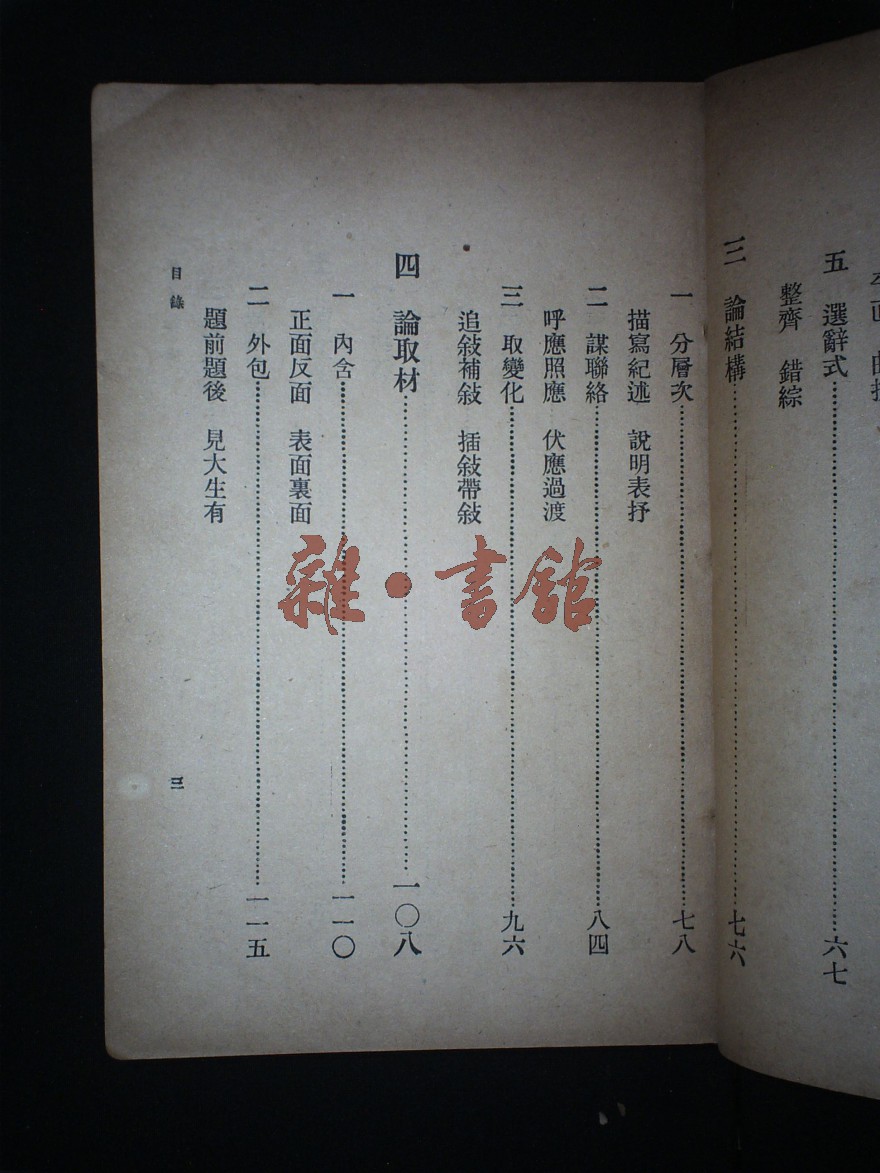 五 選辭式……六七
整齊 錯綜
三 論結構……七六
一 分層次……七八
描寫紀述 說明表抒
二 謀聯絡……八四
呼應照應 伏應過渡
三 取變化……九六
追敍補敍 插敍帶敍
四 論取材……一〇八
一 內含……一一〇
正面反面 表面裏面
二 外包……一一五
題前題後 見大生有
目錄
三
雜·書館